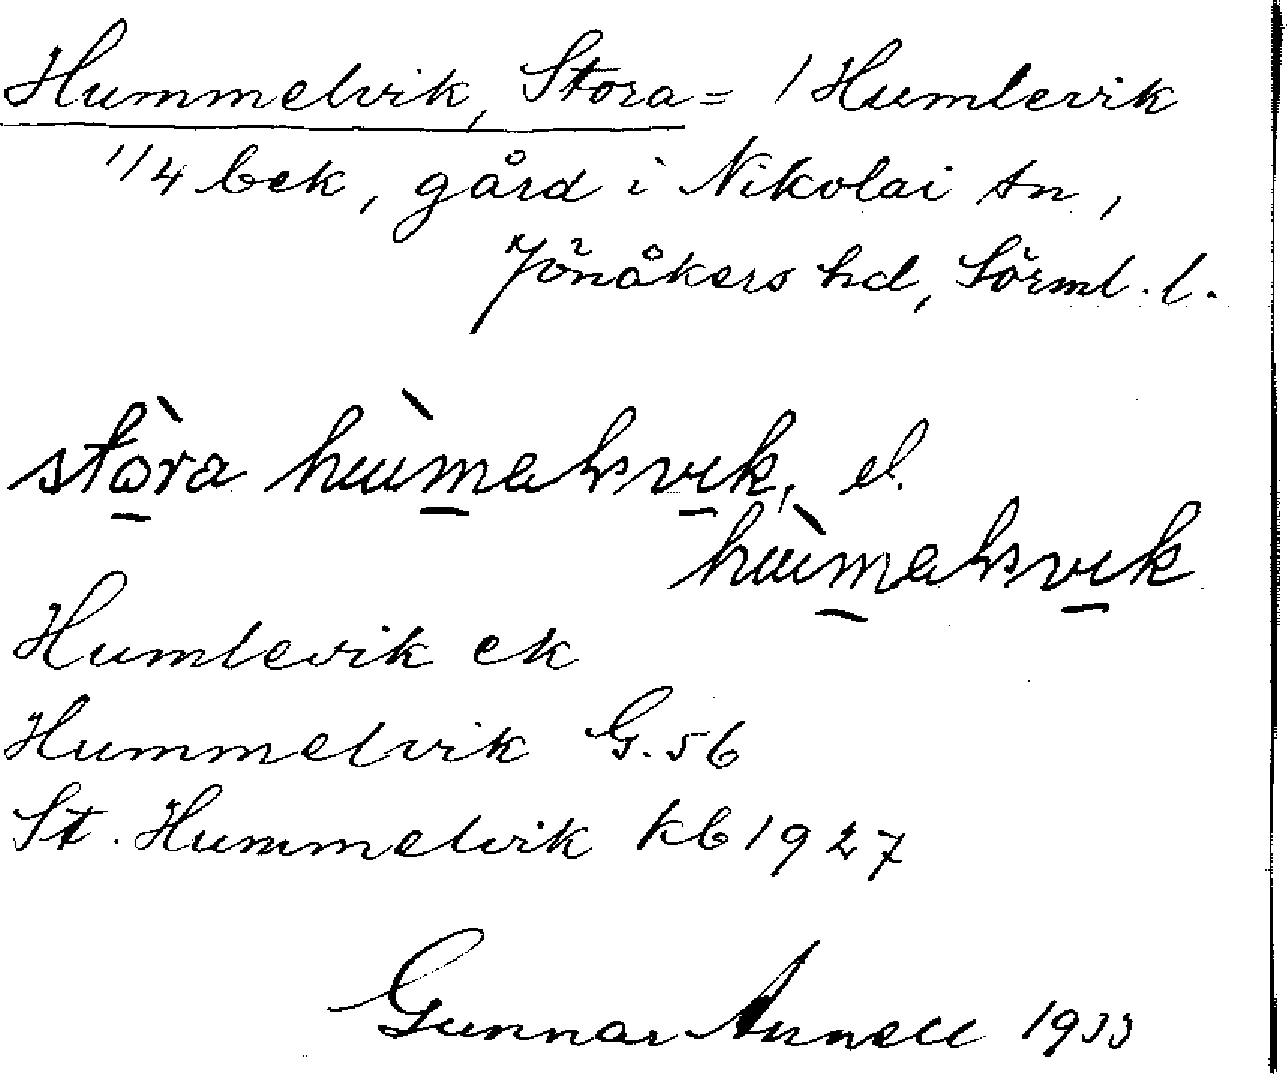 Hummelvik, Stora = 1 Humlevik
1/4 bek, gård i Nikolai sn,
Jönåkers hd, Sörml. l.
stòra hùmalsvik, el.
hùmalsvik
Humlevik ek
Hummelvik G. 56
St. Hummelvik kb 1927
Gunnar Annell 1933